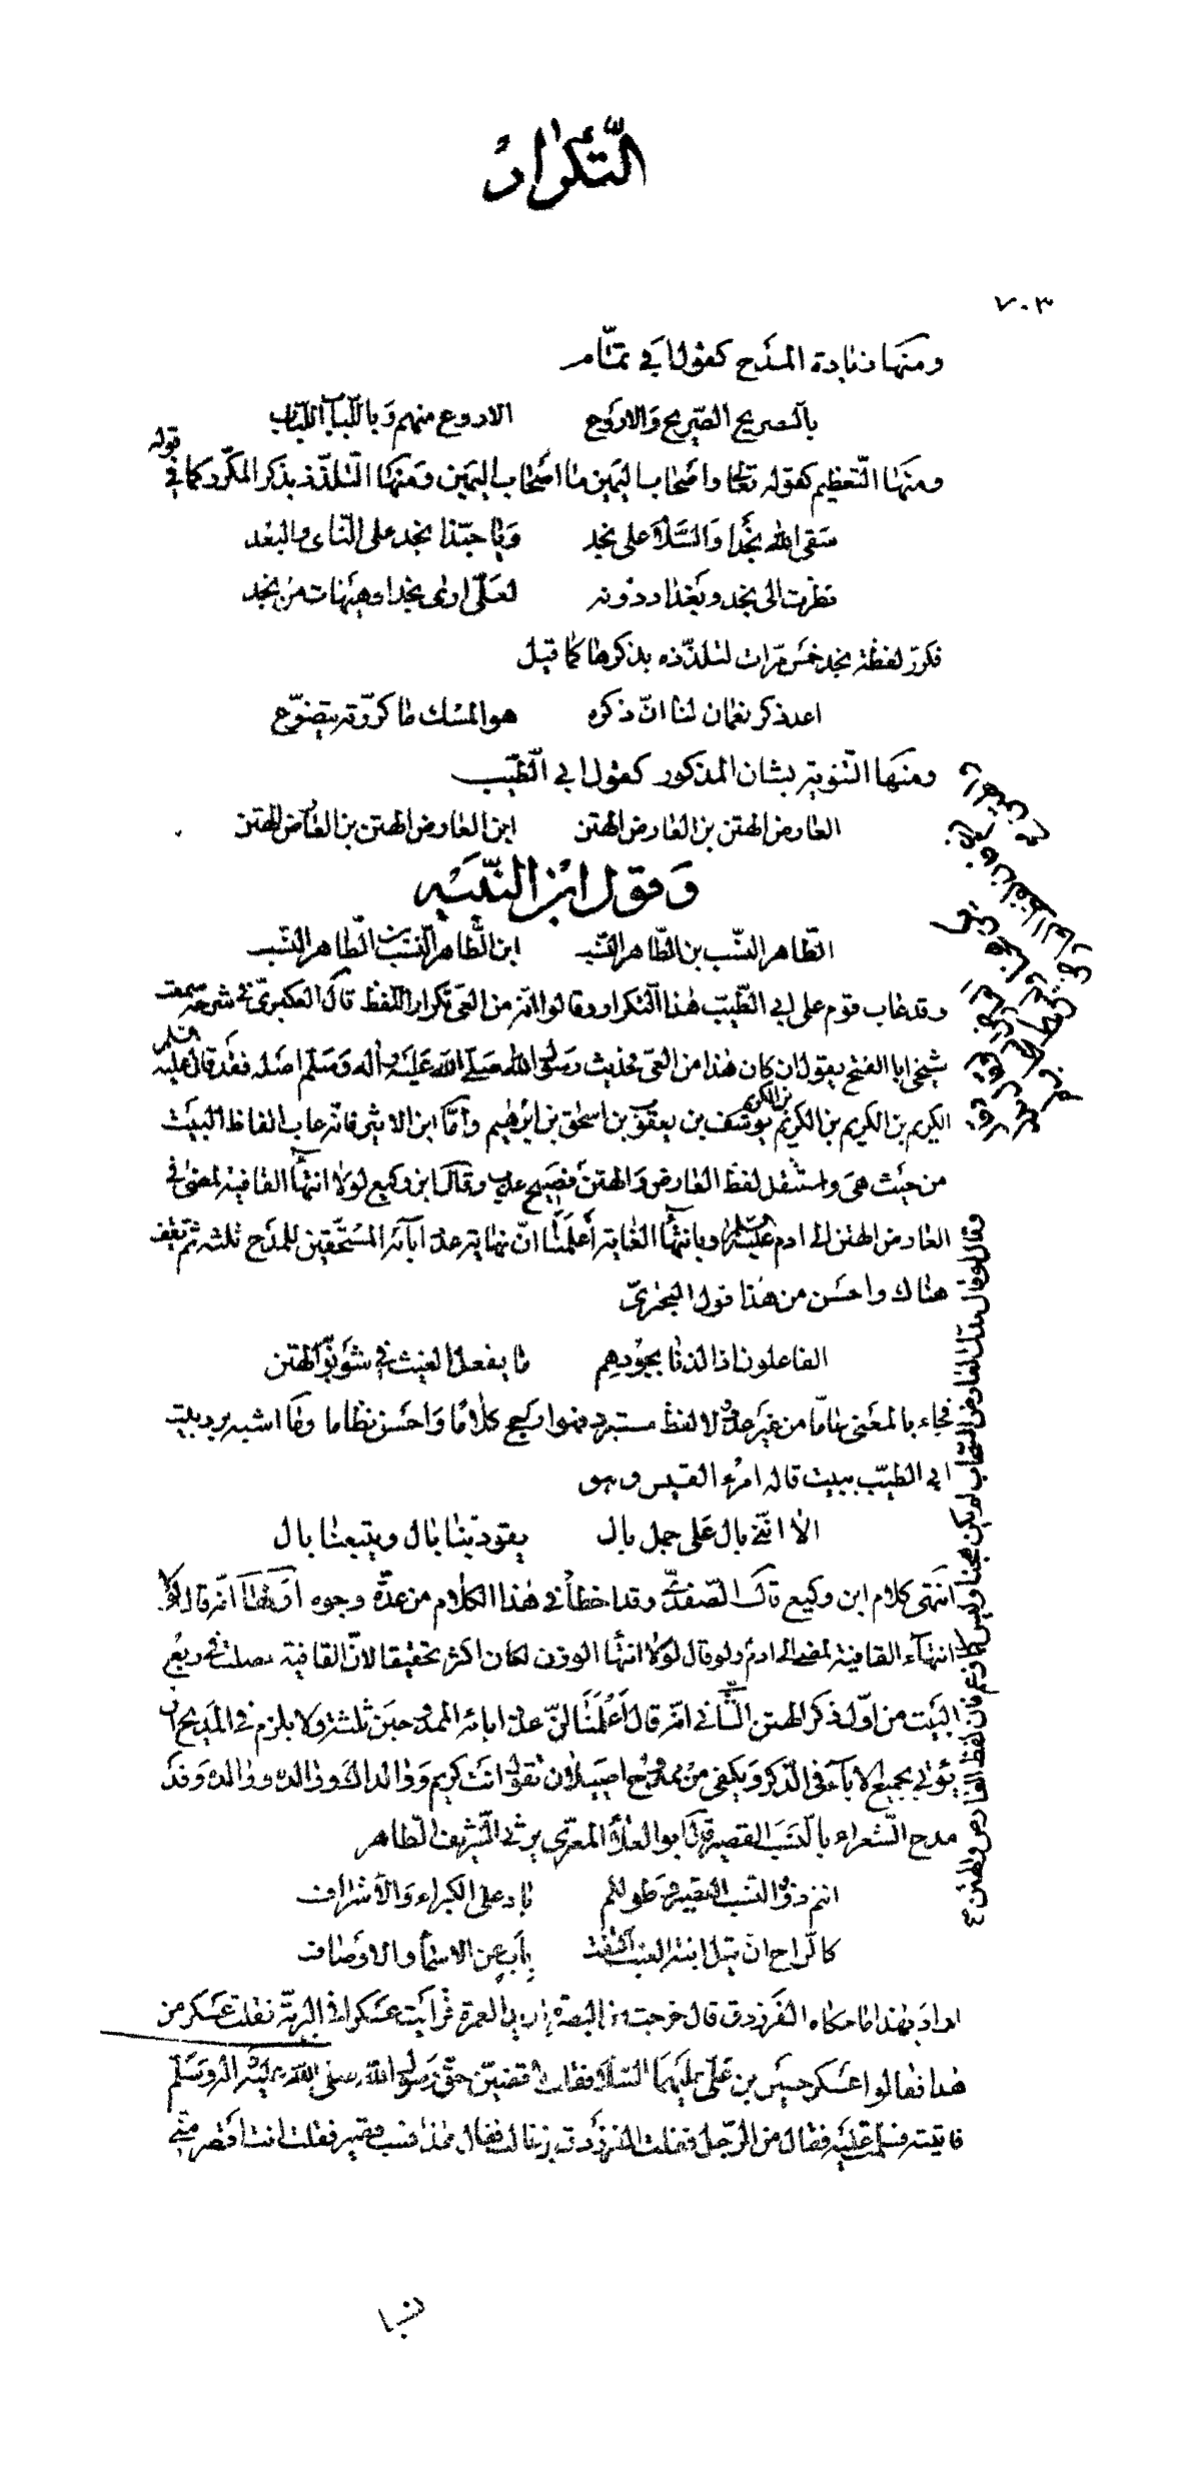 التّكرار
٧٠٣
ومنها زيادة المدح كقول ابي تمّام
بالصريح الصّريح والاروع الاروع منهم وباللّباب اللّباب
ومنها التّعظيم كقوله تعالى واصحاب اليمين ما اصحاب اليمين ومنها التّلذّذ بذكر المكرّر كما في قوله
سقى الله نجدا والسّلام على نجد ويا حبّذا نجد على النّأى والبعد
نظرت الى نجد وبغداد دونه لعلّى ارى نجدا وهيهات من نجد
فكرّر لفظة نجد خمس مرّات لتلذّذه بذكرها كما قيل
اعد ذكر نعمان لنا انّ ذكره هو المسك ما كرّرته يتضوّع
ومنها التّنويه بشان المذكور كقول ابي الطّيّب
العارض الهتن بن العارض الهتن ابن العارض الهتن بن العارض الهتن
وقول ابن النّبيه
الطّاهر النّسب بن الطّاهر النّسب ابن الطّاهر النّسب بن الطّاهر النّسب
وقد عاب قوم على ابي الطّيّب هذا التّكرار وقالوا انّه من العىّ تكرار اللّفظ قال العكبرىّ في شرحه سمعت
شيخى ابا الفتح يقول ان كان هذا من العىّ فحديث رسول الله صلّى الله عليه وآله وسلّم اصله فقد قال عليه السّلم
الكريم بن الكريم بن الكريم بن الكريم يوسف بن يعقوب بن اسحق بن ابرهيم وامّا ابن الاثير فانّه عاب الفاظ البيت
من حيث هى واستثقل لفظ العارض والهتن فصيح علي وقال ابن وكيع لولا انتهاء القافية لمضى في
العارض الهتن الى ادم عليه السّلم وبانتهاء الغاية أعلمنا انّ نهاية عدد آبائه المستحقين للمدح ثلثه ثمّ يقف
هناك واحسن من هذا قول البحترىّ
الفاعلون اذا لذنا بجودهم ما يفعل الغيث في شؤبوبه الهتن
فجاء بالمعنى تامّا من غير عدد ولا لفظ مستبرد فهو ارجح كلاما واحسن نظاما وما اشبه برد بيت
ابي الطيّب ببيت قاله امرء القيس وهو
الا انّني بال على جمل بال يقود بنا بال ويتبعنا بال
انتهى كلام ابن وكيع قال الصّفدىّ وقد اخطأ في هذا الكلام من عدّة وجوه اوّلها انّه قال لولا
انتهاء القافية لمضى الى ادم ولو قال لولا انتهاء الوزن لكان اكثر تحقيقا لانّ القافية حصلت في ربع
البيت من اوّل ذكر الهتن الثّاني انّه قال أعلمنا انّ عدد ابائه الممدوحين ثلثة ولا يلزم في المديح ان
يؤتى بجميع الاباء في الذّكر ويكفى من ممدوح اصيل ان تقول انت كريم ووالداك ووالده ووالده وقد
مدح الشّعراء بالنّسب القصير قال ابو العلاء المعرّى يرثى الشّريف الطّاهر
انتم ذوو النّسب القصير فطولكم باد على الكبراء والأشراف
كالرّاح ان قيل ابنة العنب اكتفت بأب عن الاسماء والاوصاف
اراد بهذا ما حكاه الفرزدق قال خرجت من البصرة اريد العمرة فرأيت عسكرا في البرّيّة فقلت عسكر من
هذا فقالوا عسكر حسين بن علىّ عليهما السّلام فقلت لاقضينّ حقّ رسول الله صلّى الله عليه وآله وسلّم
فاتيته فسلّمت عليه فقال من الرّجل فقلت الفرزدق بن غالب فقال هذا نسب قصير فقلت انت اقصر منّي
نسبا